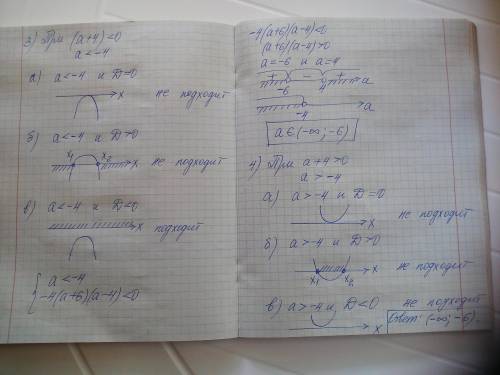 3) При (a+4)<0
a<-4
а) a<-4 и D=0
x
не подходит
б) a<-4 и D>0
x₁ x₂ x
не подходит
в) a<-4 и D<0
x подходит
{ a<-4
-4(a+6)(a-4)<0
-4(a+6)(a-4)<0
(a+6)(a-4)>0
a=-6 и a=4
+ - +
-6 4 a
-6
-4 a
a∈(-∞;-6)
4) При a+4>0
a>-4
а) a>-4 и D=0
x
не подходит
б) a>-4 и D>0
x₁ x₂ x
не подходит
в) a>-4 и D<0
не подходит
x
Ответ: (-∞;-6).